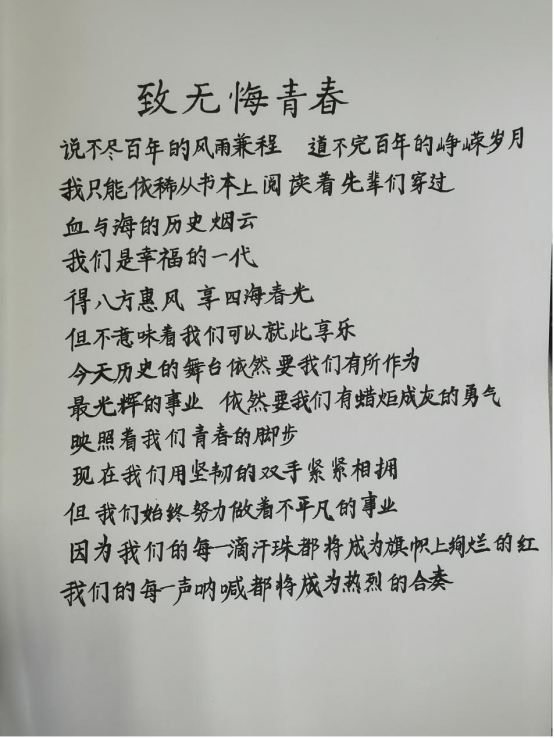 致无悔青春
说不尽百年的风雨兼程 道不完百年的峥嵘岁月
我只能依稀从书本上阅读着先辈们穿过
血与海的历史烟云
我们是幸福的一代
得八方惠风 享四海春光
但不意味着我们可以就此享乐
今天历史的舞台依然要我们有所作为
最光辉的事业 依然要我们有蜡炬成灰的勇气
映照着我们青春的脚步
现在我们用坚韧的双手紧紧相拥
但我们始终努力做着不平凡的事业
因为我们的每一滴汗珠都将成为旗帜上绚烂的红
我们的每一声呐喊都将成为热烈的合奏